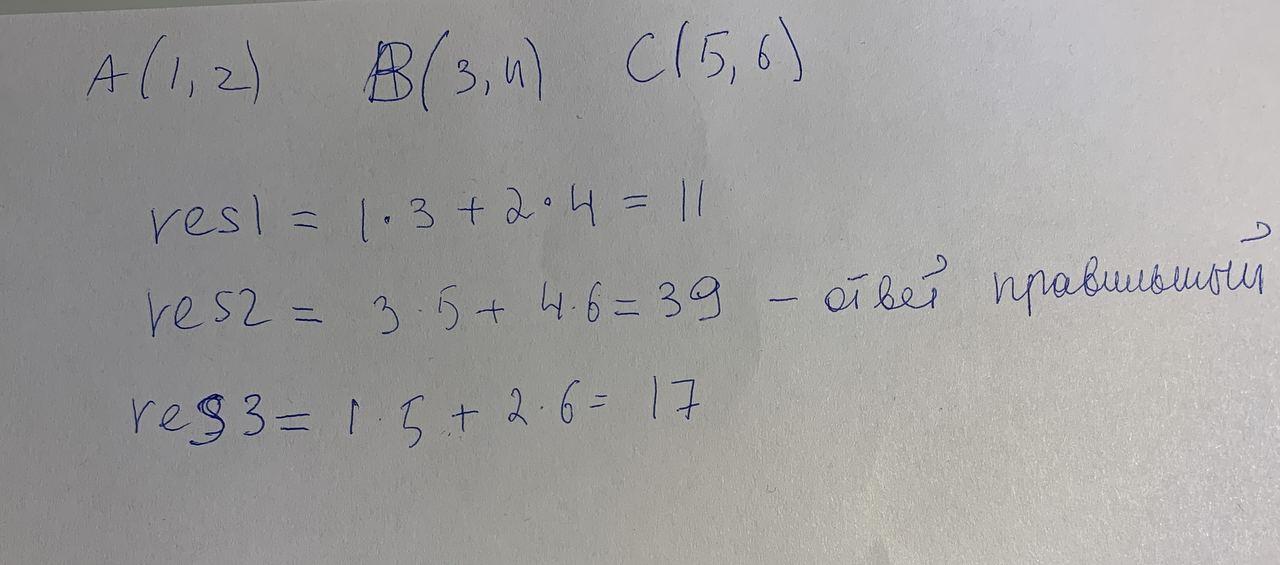 A(1,2) B(3,4) C(5,6)
res1 = 1·3 + 2·4 = 11
res2 = 3·5 + 4·6 = 39 – ответ правильный
res3 = 1·5 + 2·6 = 17